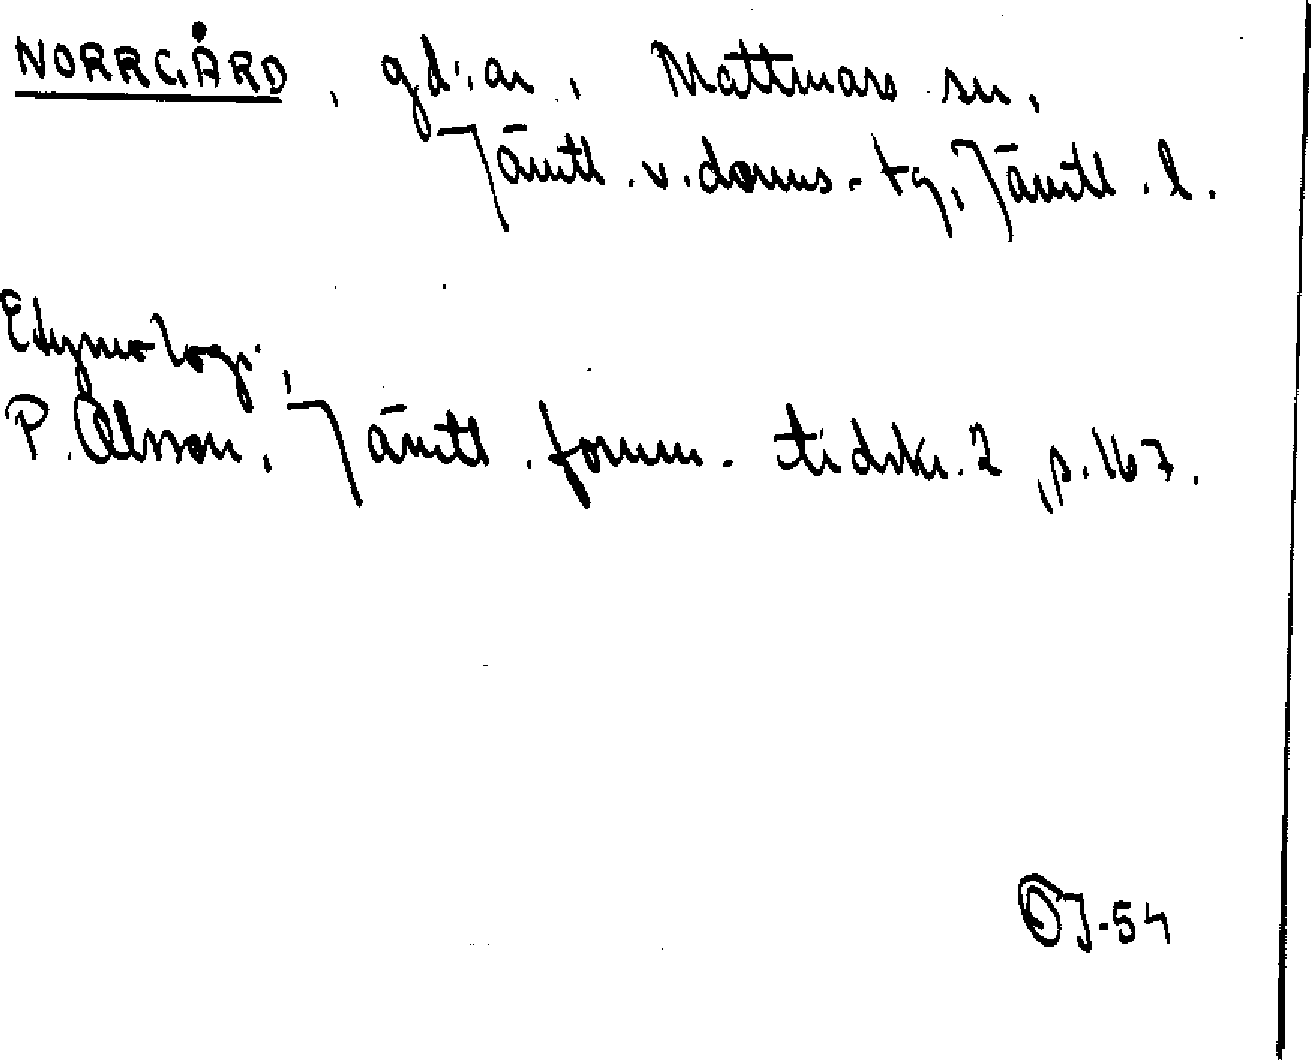 NORRGÅRD, gd:ar, Mattmars sn,
Jämtl. v. doms.-tg, Jämtl. l.
Etymologi,
P. Olsson, Jämtl. fornm. tidskr. 2, s. 167.
OJ-54